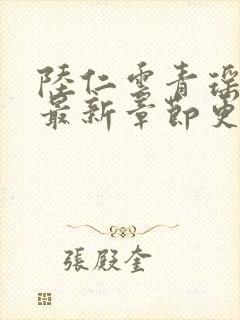 陸仁雲青瑶
最新章節更
張殿奎